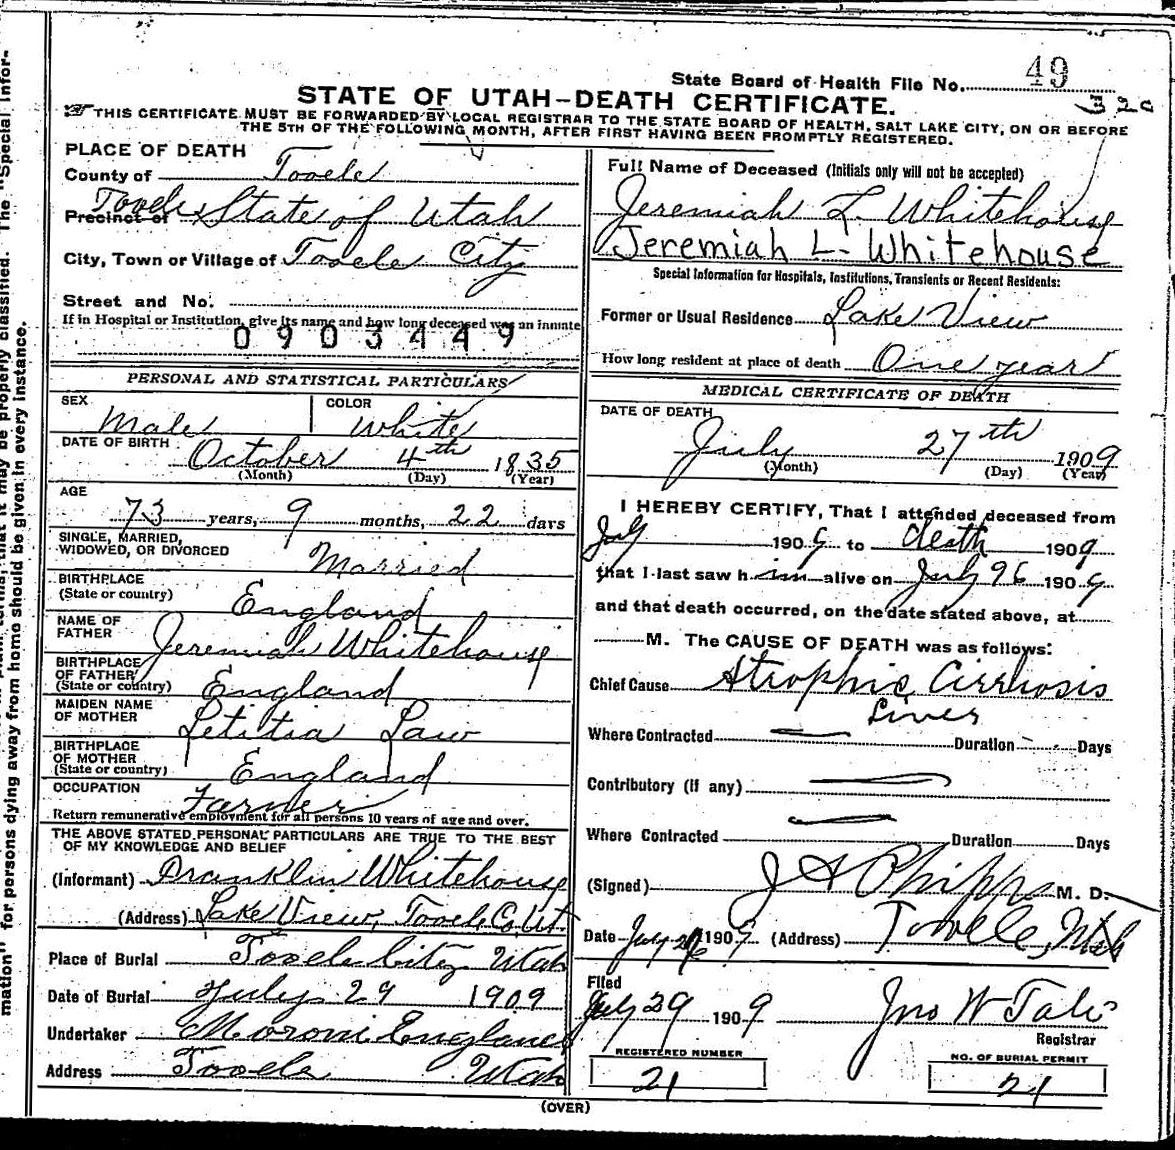 State Board of Health File No. 49
320
STATE OF UTAH–DEATH CERTIFICATE.
THIS CERTIFICATE MUST BE FORWARDED BY LOCAL REGISTRAR TO THE STATE BOARD OF HEALTH, SALT LAKE CITY, ON OR BEFORE
THE 5TH OF THE FOLLOWING MONTH, AFTER FIRST HAVING BEEN PROMPTLY REGISTERED.
PLACE OF DEATH
County of Tooele
Precinct of Tooele State of Utah
City, Town or Village of Tooele City
Street and No.
If in Hospital or Institution, give its name and how long deceased was an inmate
0903449
PERSONAL AND STATISTICAL PARTICULARS
SEX Male
COLOR White
DATE OF BIRTH October 4th 1835
(Month) (Day) (Year)
AGE 73 years, 9 months, 22 days
SINGLE, MARRIED,
WIDOWED, OR DIVORCED Married
BIRTHPLACE
(State or country) England
NAME OF
FATHER Jeremiah Whitehouse
BIRTHPLACE
OF FATHER
(State or country) England
MAIDEN NAME
OF MOTHER Letitia Law
BIRTHPLACE
OF MOTHER
(State or country) England
OCCUPATION Farmer
Return remunerative employment for all persons 10 years of age and over.
THE ABOVE STATED PERSONAL PARTICULARS ARE TRUE TO THE BEST
OF MY KNOWLEDGE AND BELIEF
(Informant) Franklin Whitehouse
(Address) Lake View, Tooele Co. Ut.
Place of Burial Tooele City Utah
Date of Burial July 29 1909
Undertaker Moroni England
Address Tooele Utah
Full Name of Deceased (Initials only will not be accepted)
Jeremiah L. Whitehouse
Jeremiah L. Whitehouse
Special Information for Hospitals, Institutions, Transients or Recent Residents:
Former or Usual Residence Lake View
How long resident at place of death One year
MEDICAL CERTIFICATE OF DEATH
DATE OF DEATH
July 27th 1909
(Month) (Day) (Year)
I HEREBY CERTIFY, That I attended deceased from
July 1909 to death 1909
that I last saw him alive on July 26 1909
and that death occurred, on the date stated above, at
M. The CAUSE OF DEATH was as follows:
Chief Cause Atrophic Cirrhosis
Liver
Where Contracted Duration Days
Contributory (if any)
Where Contracted Duration Days
(Signed) J A Phipps M. D.
Date July 1909 (Address) Tooele, Utah
Filed
July 29 1909 Jno W Tate
Registrar
REGISTERED NUMBER
21
NO. OF BURIAL PERMIT
21
(OVER)
mation" for persons dying away from home should be given in every instance.
that it may be properly classified. The "Special Infor-